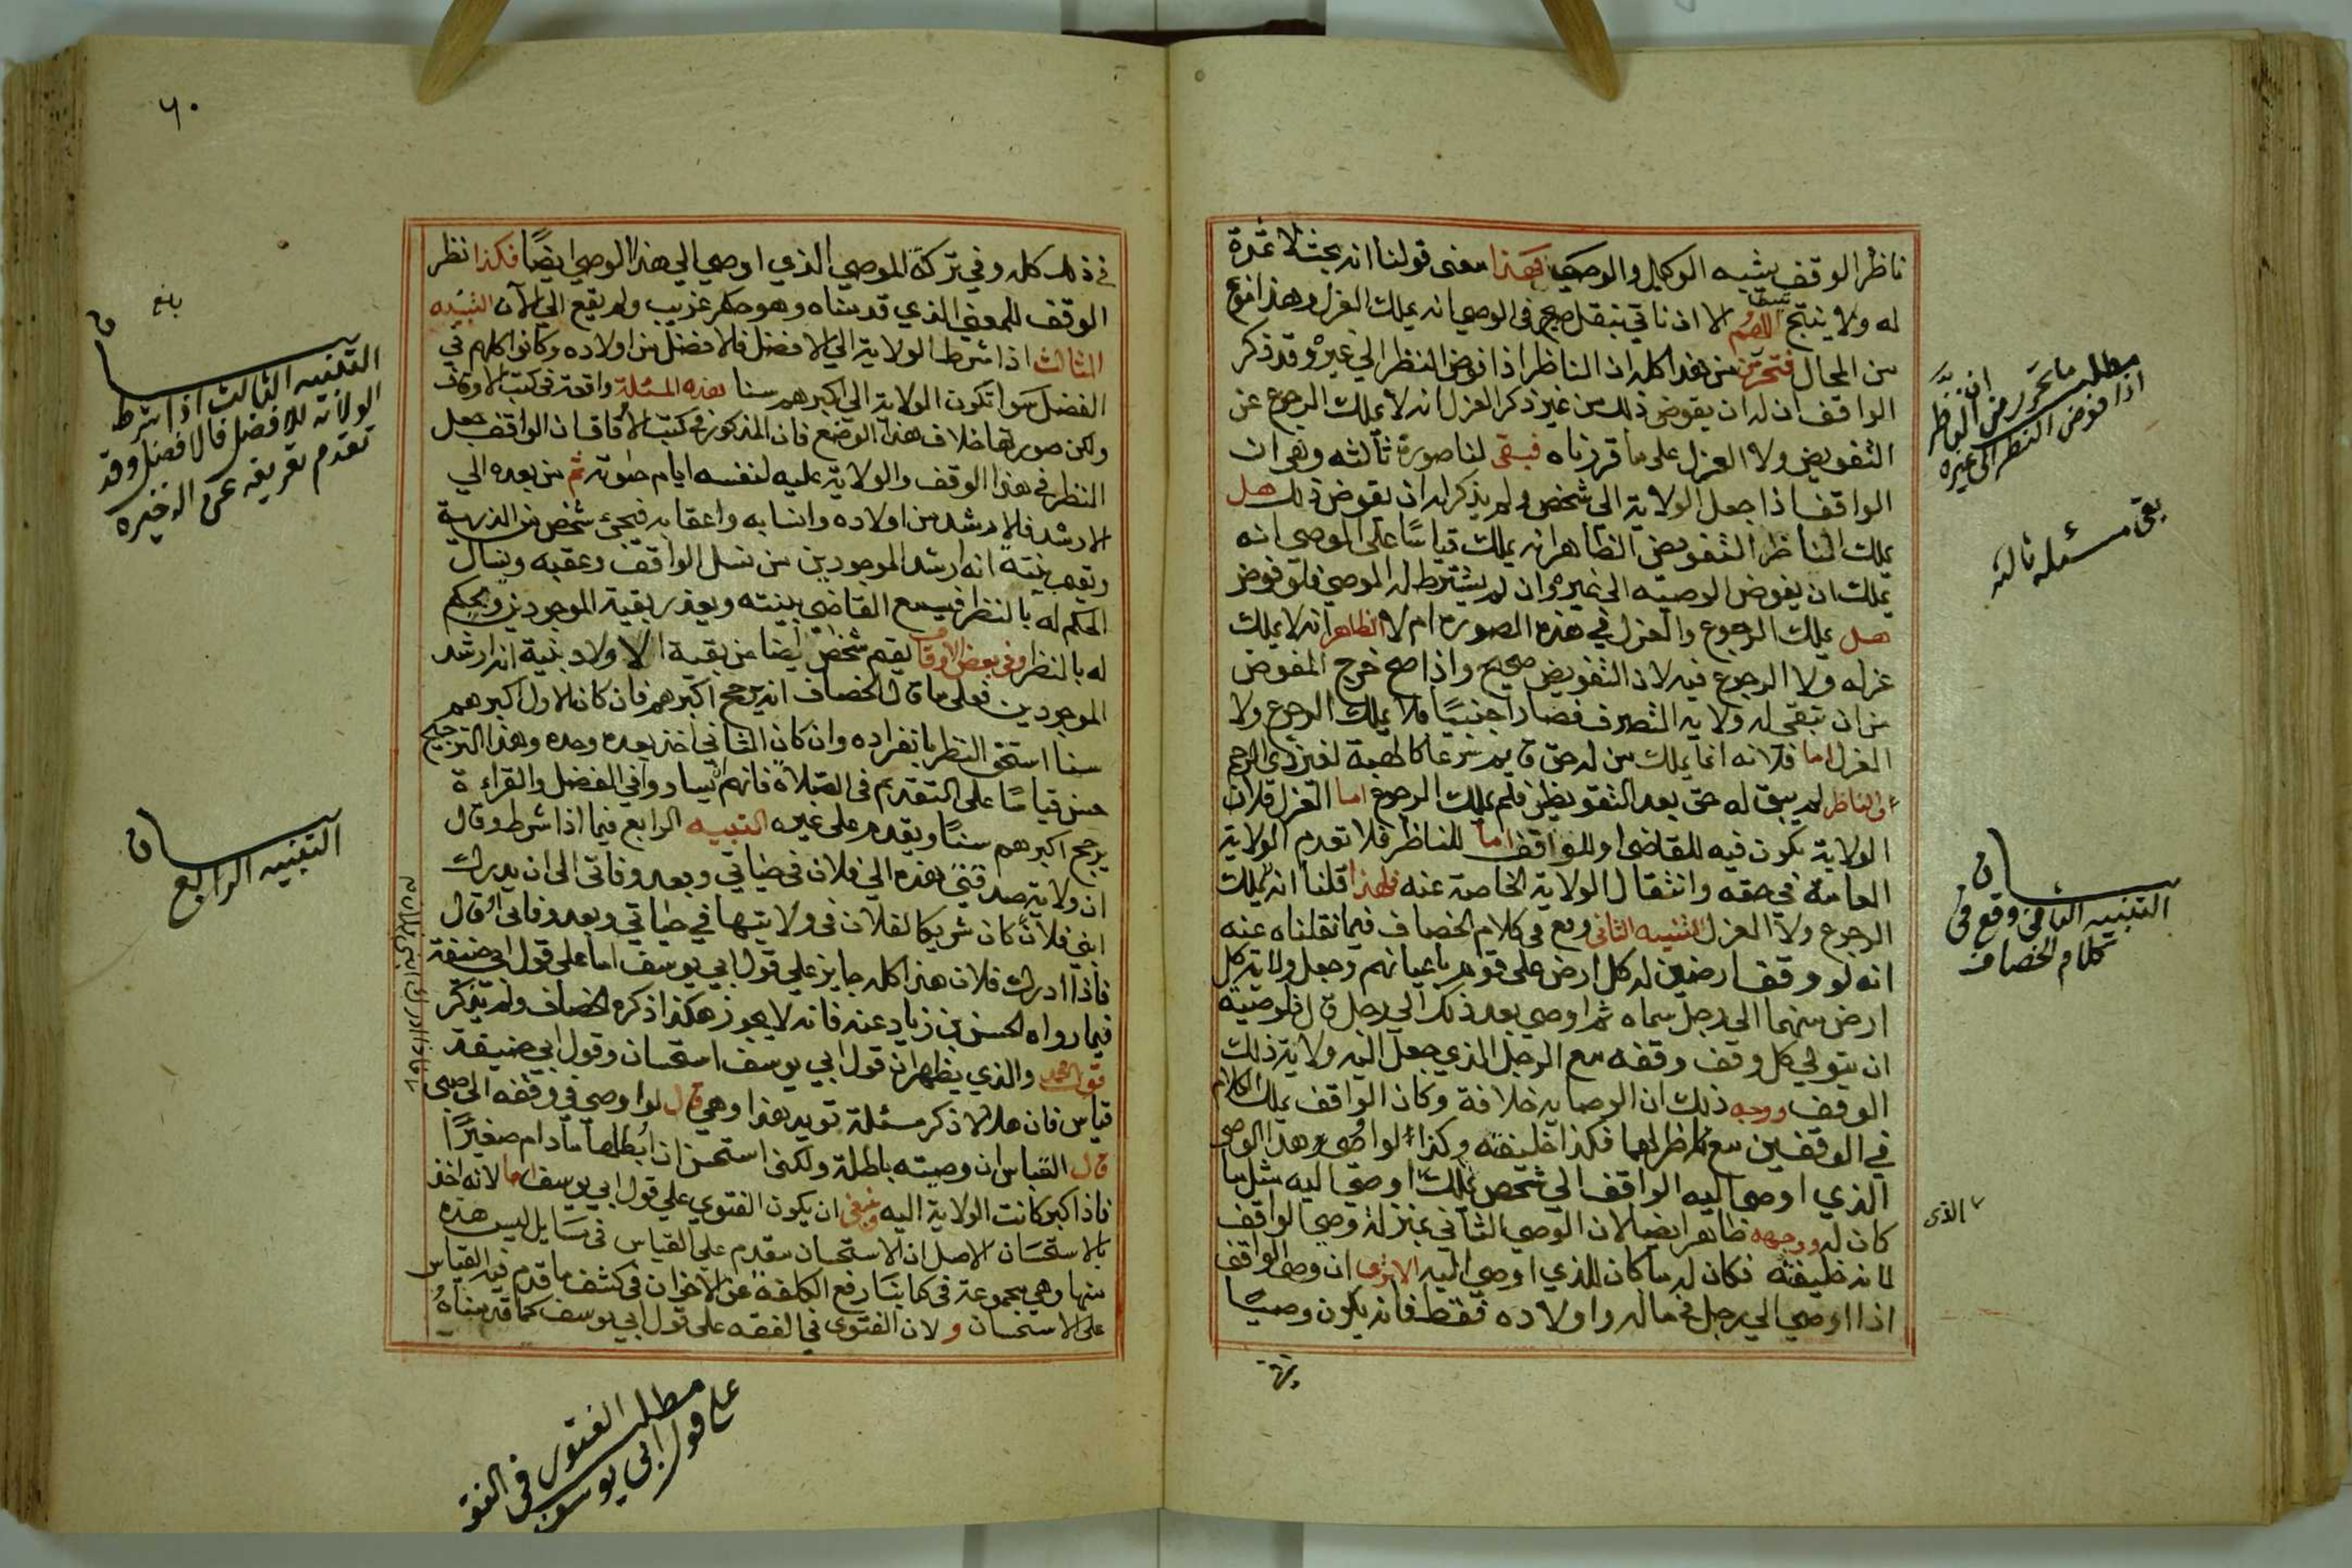 ناظر الوقف يشبه الوكيل والوصي فهذا معنى قولنا انه بحث لا ثمرة
له ولا ينتج اللهم الا ان ناتي بنقل صحيح في الوصي انه يملك العزل وهذا نوع
من المحال فتحرر من هذا كله ان الناظر اذا فوض النظر الى غيره وقد ذكر
الواقف ان له ان يفوض ذلك من غير ذكر العزل انه لا يملك الرجوع عن
التفويض ولا العزل على ما قررناه فبقى لنا صورة ثالثه وهي ان
الواقف اذا جعل الولاية الى شخص ولم يذكر له ان يفوض ذلك هل
يملك الناظر التفويض الظاهر انه يملك قياسا على الوصي انه
يملك ان يفوض الوصيه الى غيره وان لم يشترط له الموصي فلو فوض
هل يملك الرجوع والعزل في هذه الصوره ام لا الظاهر انه لا يملك
عزله ولا الرجوع فيه لان التفويض صحيح واذا صح خرج المفوض
من ان تبقى له ولاية التصرف فصار اجنبيا فلا يملك الرجوع ولا
العزل اما فلانه انما يملك من له حق قايم شرعا كالهبة لغير ذي الرحم
والناظر لم يبق له حق بعد التفويض فلم يملك الرجوع اما العزل فلان
الولاية تكون فيه للقاضي او للواقف اما للناظر فلا تقدم الولاية
العامة في حقه وانتقال الولاية الخاصة عنه فلهذا قلنا انه لا يملك
الرجوع ولا العزل التنبيه الثاني وقع في كلام الخصاف فيما نقلناه عنه
انه لو وقف ارضين له كل ارض على قوم باعيانهم وجعل ولاية كل
ارض منهما الى رجل سماه ثم اوصى بعد ذلك الى رجل قال فلوصيه
ان يتولى كل وقف وقفه مع الرجل الذي جعل اليه ولاية ذلك
الوقف ووجه ذلك ان الوصايه خلافة وكان الواقف يملك الكلام
في الوقفين مع ناظرهما فكذا خليفته وكذا لو اوصى هذا الوصي
الذي اوصى اليه الواقف الى شخص يملك اوصي اليه مثل ما
كان له ووجهه ظاهر ايضا لان الوصي الثاني بمنزلة وصي الواقف
لانه خليفته فكان له ما كان للذي اوصي اليه الا ترى ان وصي الواقف
اذا اوصى الى رجل في ماله واولاده فقط فانه يكون وصيا
مطلب ما تحرر من ان الناظر
اذا فوض النظر الى غيره
بقى مسئله ثالثه
التنبيه الثاني وقع في
كلام الخصاف
الذي
٦٠
في ذلك كله وفي تركة الموصي الذي اوصى الى هذا الوصي ايضا فكذا نظر
الوقف للمعنى الذي قدمناه وهو حكم غريب ولم يقع الى الآن التنبيه
الثالث اذا شرط الولاية الى الافضل فالافضل من اولاده وكانوا كلهم في
الفضل سوا تكون الولاية الى اكبرهم سنا هذه المسئلة واقعة في كتب الاوقاف
ولكن صورتها خلاف هذا الوضع فان المذكور في كتب الاوقاف ان الواقف جعل
النظر في هذا الوقف والولاية عليه لنفسه ايام حيوته ثم من بعده الى
الارشد فالارشد من اولاده وانسابه واعقابه فيجئ شخص من الذرية
ويقيم بينة انه ارشد الموجودين من نسل الواقف وعقبه ويسال
الحكم له بالنظر فيسمع القاضي بينته ويعذر بقية الموجودين ويحكم
له بالنظر وفي بعض الاوقات يقيم شخص ايضا من بقية الاولاد بنية انه ارشد
الموجودين فعلى ما قال الخصاف انه يرجح اكبرهم فان كان الاول اكبرهم
سنا استحق النظر بانفراده وان كان الثاني اخذ بعده وحده وهذا الترجيح
حسن قياسا على التقديم في الصلاة فانهم اذا تساووا في الفضل والقراءة
يرجح اكبرهم سنا ويقدم على غيره التنبيه الرابع فيما اذا شرط وقال
ان ولاية صدقتي هذه الى فلان في حياتي وبعد وفاتي الى ان يدرك
ابني فلان كان شريكا لفلان في ولايتها في حياتي وبعد وفاتي او قال
فاذا ادرك فلان هذا كله جايز على قول ابي يوسف اما على قول ابي حنيفة
فيما رواه الحسن بن زياد عنه فانه لا يجوز هكذا ذكره الخصاف ولم يذكر
قول محمد والذي يظهر ان قول ابي يوسف استحسان وقول ابي حنيفة
قياس فان هلالا ذكر مسئلة تويد هذا وهي قال لو اوصى في وقفه الى صبي
قال القياس ان وصيته باطلة ولكني استحسن ان ابطلها ما دام صغيرا
فاذا كبر كانت الولاية اليه وينبغي ان يكون الفتوى على قول ابي يوسف اما لانه اخذ
بالاستحسان الاصل ان الاستحسان مقدم على القياس في مسايل ليس هذه
منها وهي مجموعة في كتابنا رفع الكلفة عن الاخوان في كشف ما قدم فيه القياس
على الاستحسان ولان الفتوى في الفقه على قول ابي يوسف كما قدمناه
بلغ
التنبيه الثالث اذا شرط
الولاية للافضل فالافضل وقد
تقدم تعريفه عن الذخيره
التنبيه الرابع
مطلب الفتوى في الفقه
على قول ابي يوسف